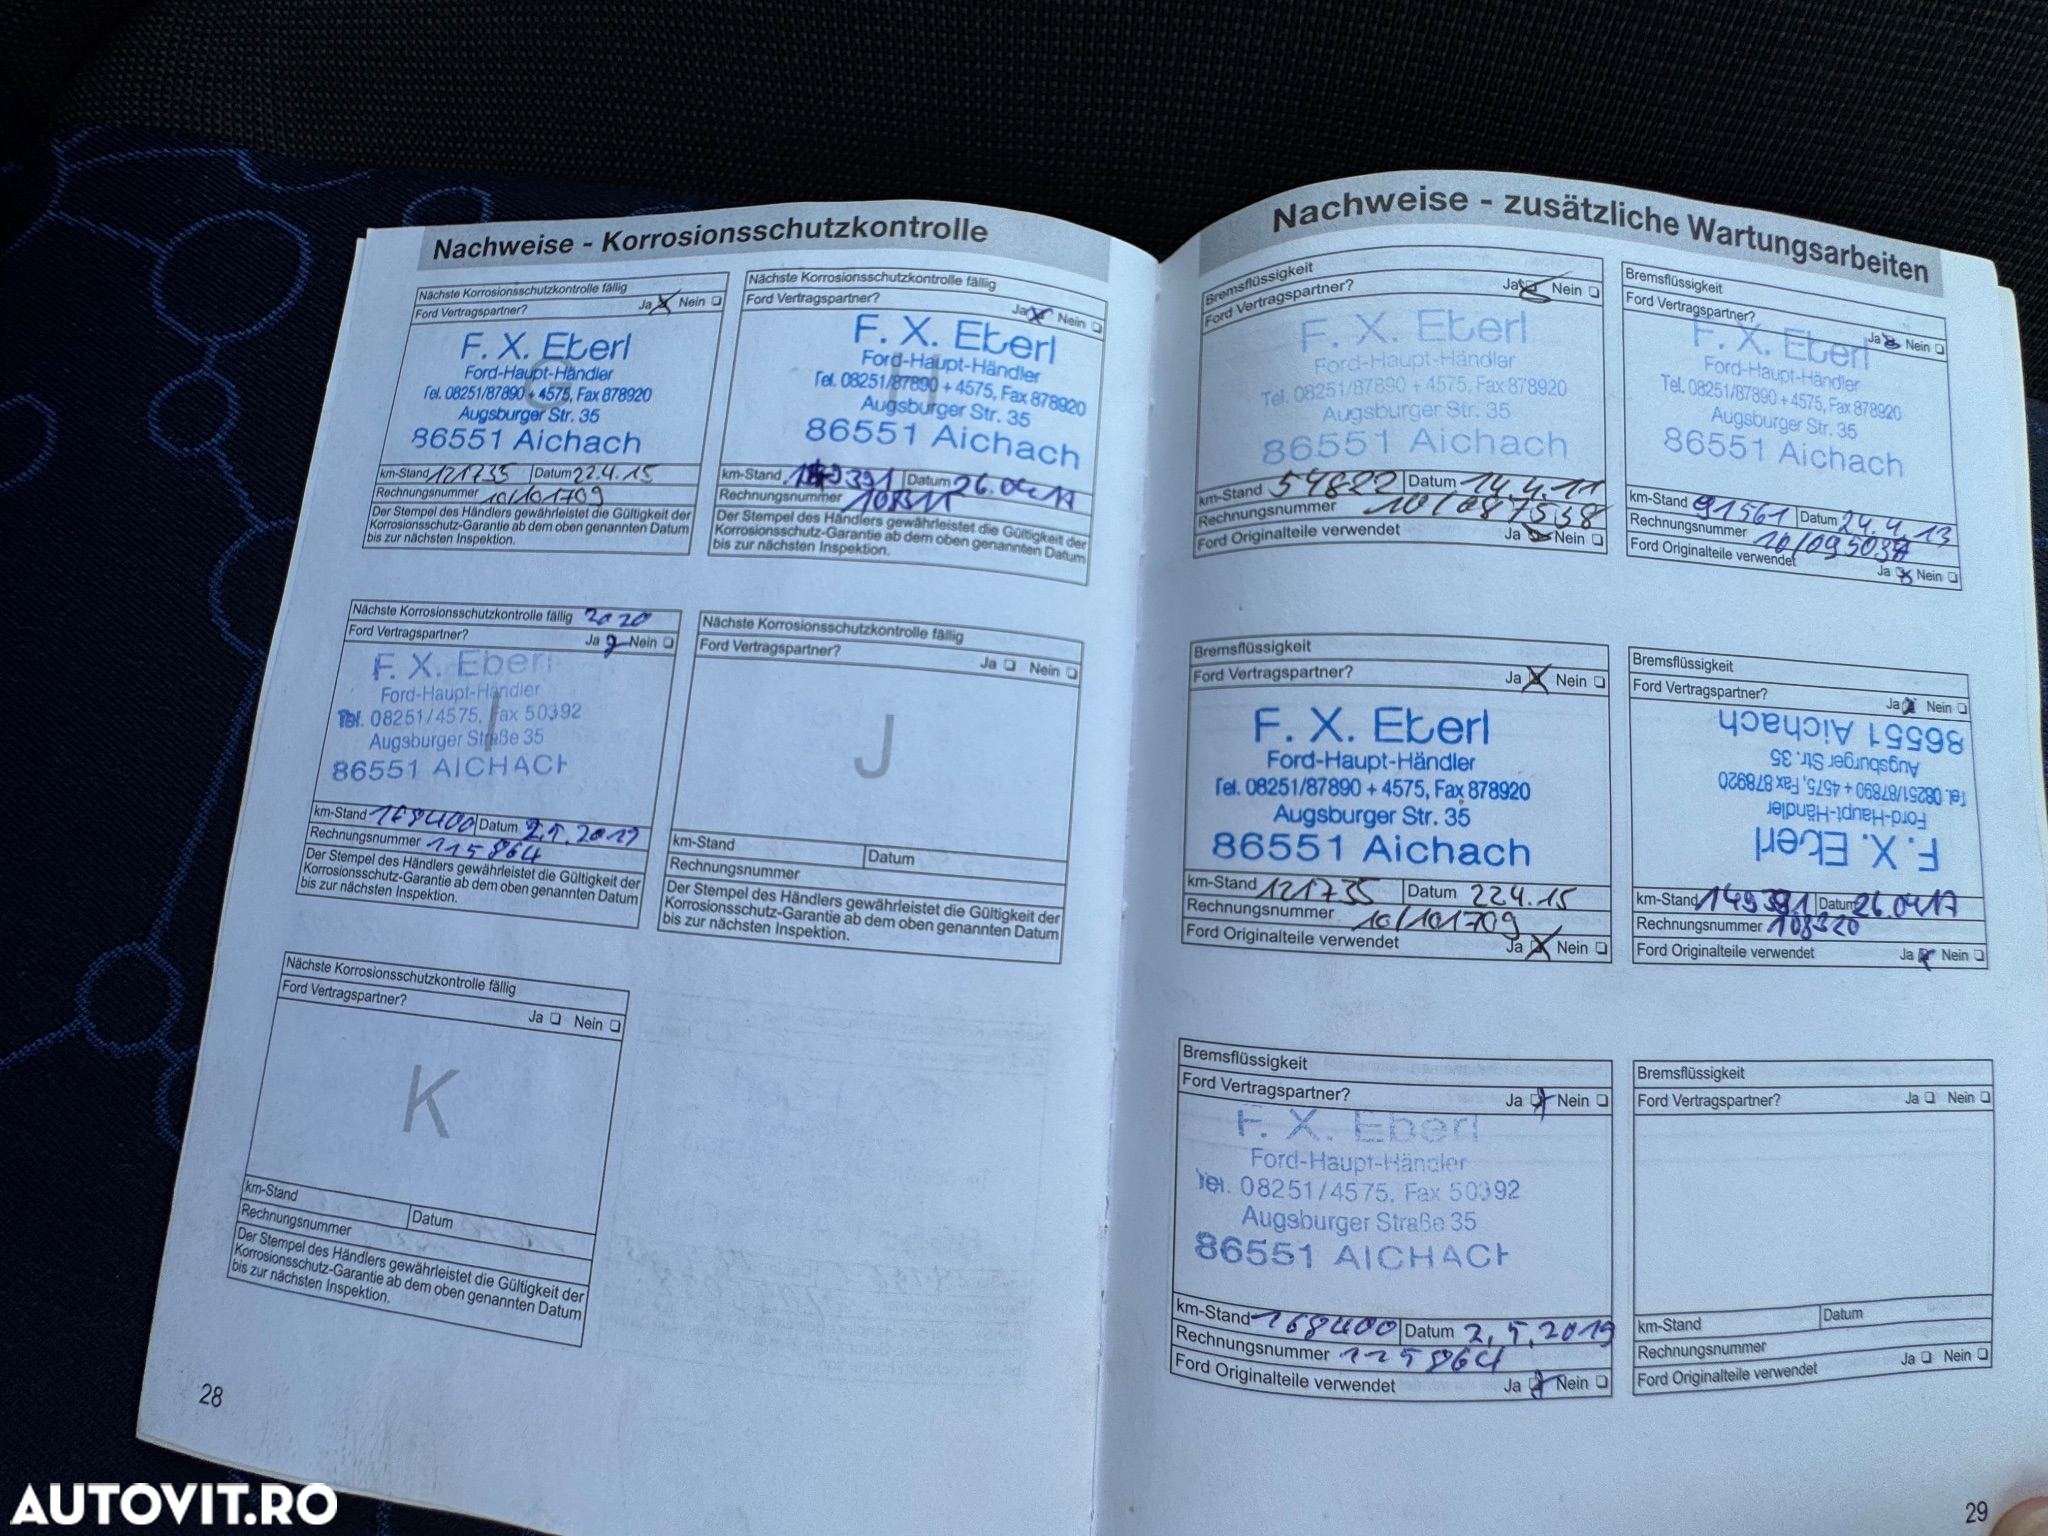 Nachweise - Korrosionsschutzkontrolle
Nächste Korrosionsschutzkontrolle fällig
Ford Vertragspartner? Ja Nein
F. X. Eberl
Ford-Haupt-Händler
Tel. 08251/87890 + 4575, Fax 878920
Augsburger Str. 35
86551 Aichach
G
km-Stand 121735 Datum 22.4.15
Rechnungsnummer 10/101709
Der Stempel des Händlers gewährleistet die Gültigkeit der
Korrosionsschutz-Garantie ab dem oben genannten Datum
bis zur nächsten Inspektion.
Nächste Korrosionsschutzkontrolle fällig
Ford Vertragspartner? Ja Nein
F. X. Eberl
Ford-Haupt-Händler
Tel. 08251/87890 + 4575, Fax 878920
Augsburger Str. 35
86551 Aichach
H
km-Stand Datum 26.04.17
Rechnungsnummer
Der Stempel des Händlers gewährleistet die Gültigkeit der
Korrosionsschutz-Garantie ab dem oben genannten Datum
bis zur nächsten Inspektion.
Nächste Korrosionsschutzkontrolle fällig 2020
Ford Vertragspartner? Ja Nein
F. X. Eberl
Ford-Haupt-Händler
Tel. 08251/4575, Fax 50392
Augsburger Straße 35
86551 AICHACH
I
km-Stand 168400 Datum 2.5.2019
Rechnungsnummer 115864
Der Stempel des Händlers gewährleistet die Gültigkeit der
Korrosionsschutz-Garantie ab dem oben genannten Datum
bis zur nächsten Inspektion.
Nächste Korrosionsschutzkontrolle fällig
Ford Vertragspartner?
Ja Nein
J
km-Stand Datum
Rechnungsnummer
Der Stempel des Händlers gewährleistet die Gültigkeit der
Korrosionsschutz-Garantie ab dem oben genannten Datum
bis zur nächsten Inspektion.
Nächste Korrosionsschutzkontrolle fällig
Ford Vertragspartner?
Ja Nein
K
km-Stand Datum
Rechnungsnummer
Der Stempel des Händlers gewährleistet die Gültigkeit der
Korrosionsschutz-Garantie ab dem oben genannten Datum
bis zur nächsten Inspektion.
28
Nachweise - zusätzliche Wartungsarbeiten
Bremsflüssigkeit
Ford Vertragspartner? Ja Nein
F. X. Eberl
Ford-Haupt-Händler
Tel. 08251/87890 + 4575, Fax 878920
Augsburger Str. 35
86551 Aichach
km-Stand 54822 Datum 14.4.11
Rechnungsnummer 10/087538
Ford Originalteile verwendet Ja Nein
Bremsflüssigkeit
Ford Vertragspartner? Ja Nein
F. X. Eberl
Ford-Haupt-Händler
Tel. 08251/87890 + 4575, Fax 878920
Augsburger Str. 35
86551 Aichach
km-Stand 91561 Datum 24.4.13
Rechnungsnummer
Ford Originalteile verwendet Ja Nein
Bremsflüssigkeit
Ford Vertragspartner? Ja Nein
F. X. Eberl
Ford-Haupt-Händler
Tel. 08251/87890 + 4575, Fax 878920
Augsburger Str. 35
86551 Aichach
km-Stand 121735 Datum 22.4.15
Rechnungsnummer 10/101709
Ford Originalteile verwendet Ja Nein
Bremsflüssigkeit
Ford Vertragspartner? Ja Nein
F. X. Eberl
Ford-Haupt-Händler
Tel. 08251/87890 + 4575, Fax 878920
Augsburger Str. 35
86551 Aichach
km-Stand Datum 26.04.17
Rechnungsnummer 108320
Ford Originalteile verwendet Ja Nein
Bremsflüssigkeit
Ford Vertragspartner? Ja Nein
F. X. Eberl
Ford-Haupt-Händler
Tel. 08251/4575, Fax 50392
Augsburger Straße 35
86551 AICHACH
km-Stand 168400 Datum 2.5.2019
Rechnungsnummer 115864
Ford Originalteile verwendet Ja Nein
Bremsflüssigkeit
Ford Vertragspartner? Ja Nein
km-Stand Datum
Rechnungsnummer
Ford Originalteile verwendet Ja Nein
29
AUTOVIT.RO